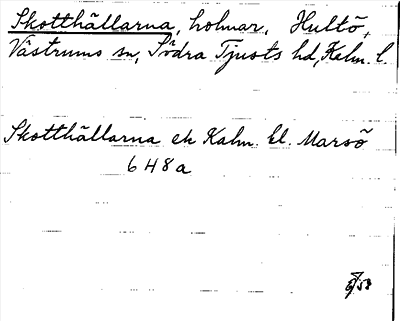 Skotthällarna, holmar, Hultö,
Västrums sn, Södra Tjusts hd, Kalm. l.
Skotthällarna ek Kalm. bl. Marsö
6 H 8 a